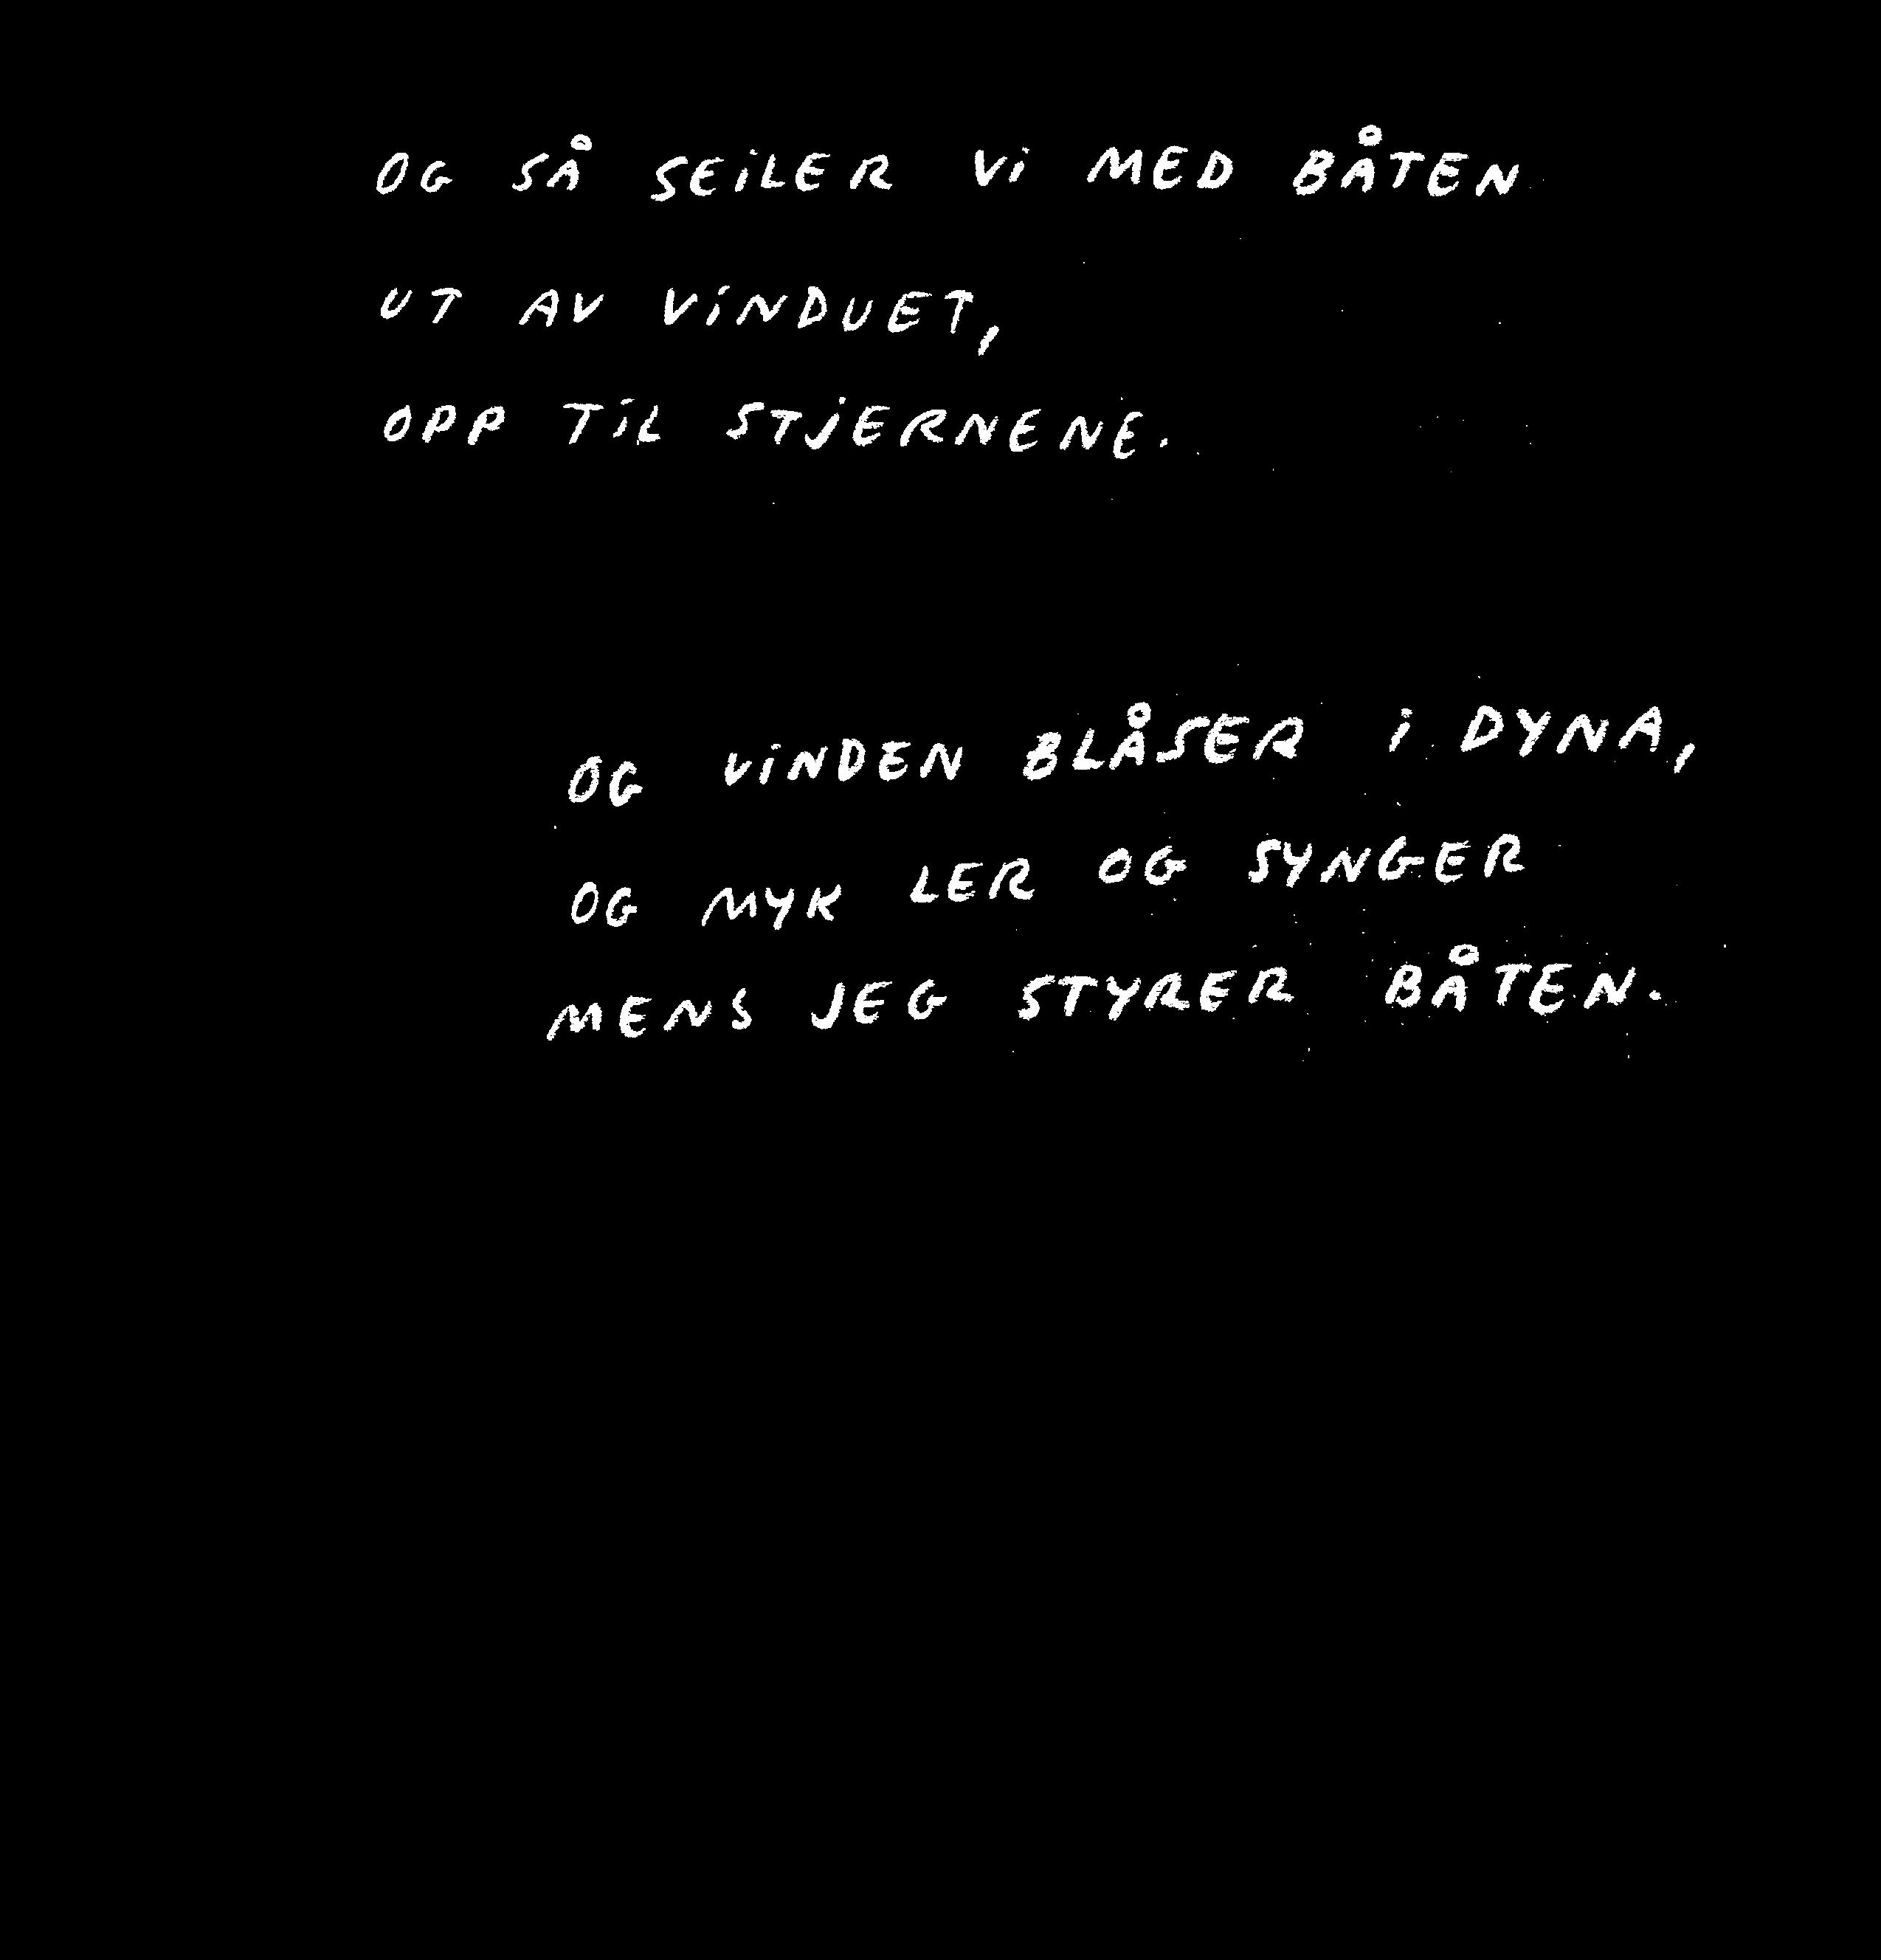 OG SÅ SEiLER Vi MED BÅTEN
UT AV ViNDUET,
OPP TiL STjERNENE.
OG ViNDEN BLÅSER i DYNA,
OG MYK LER OG SYNGER
MENS JEG STYRER BÅTEN.